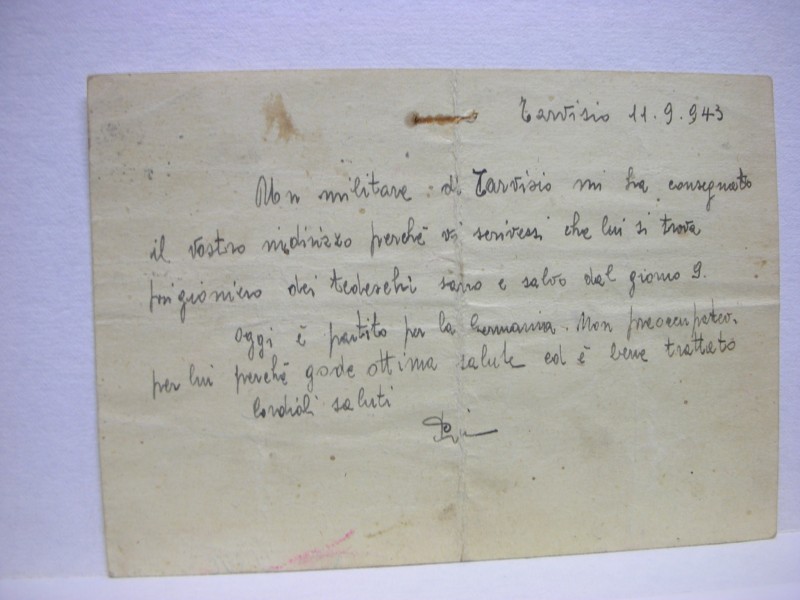 Tarvisio 11.9.943
Un militare di Tarvisio mi ha consegnato
il vostro indirizzo perchè vi scrivessi che lui si trova
prigioniero dei tedeschi sano e salvo dal giorno 9.
Oggi è partito per la Germania. Non preoccupatevi
per lui perchè gode ottima salute ed è bene trattato
Cordiali saluti